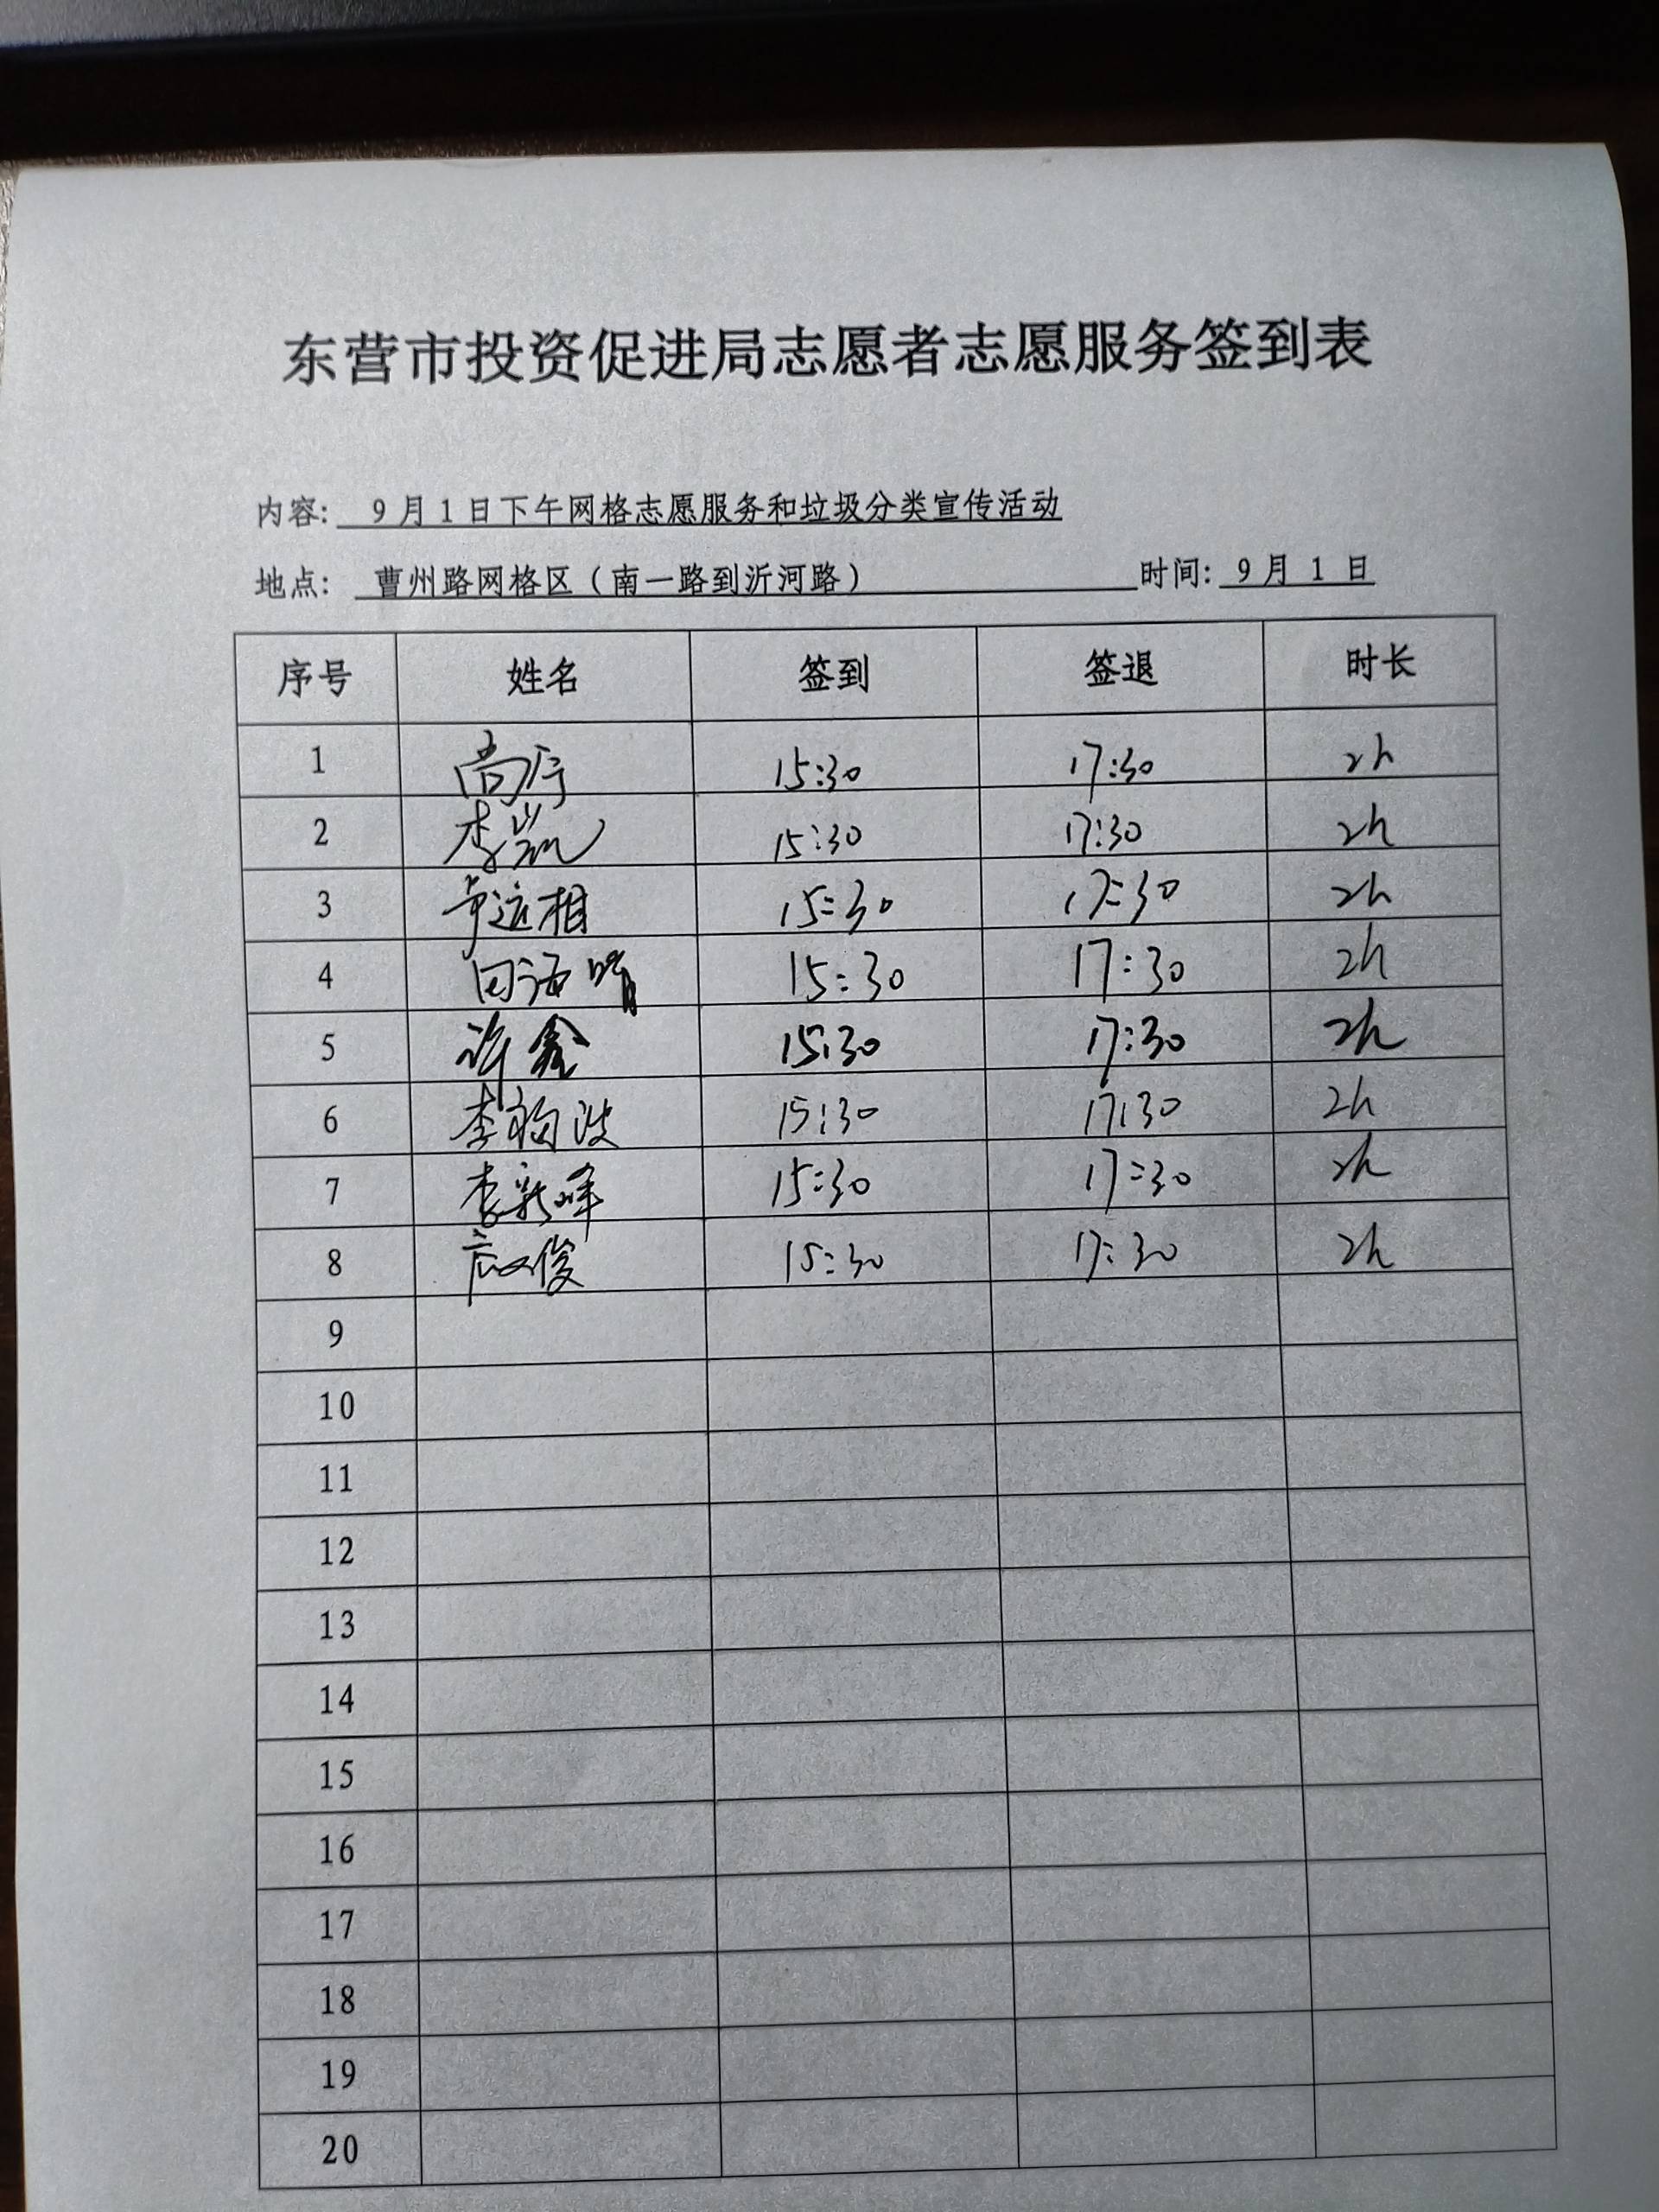 东营市投资促进局志愿者志愿服务签到表
内容: 9月1日下午网格志愿服务和垃圾分类宣传活动
地点: 曹州路网格区（南一路到沂河路） 时间: 9月1日
序号 姓名 签到 签退 时长
1 尚 15:30 17:30 2h
2 李凯 15:30 17:30 2h
3 远相 15:30 17:30 2h
4 15:30 17:30 2h
5 许鑫 15:30 17:30 2h
6 李 波 15:30 17:30 2h
7 李新峰 15:30 17:30 2h
8 俊 15:30 17:30 2h
9
10
11
12
13
14
15
16
17
18
19
20